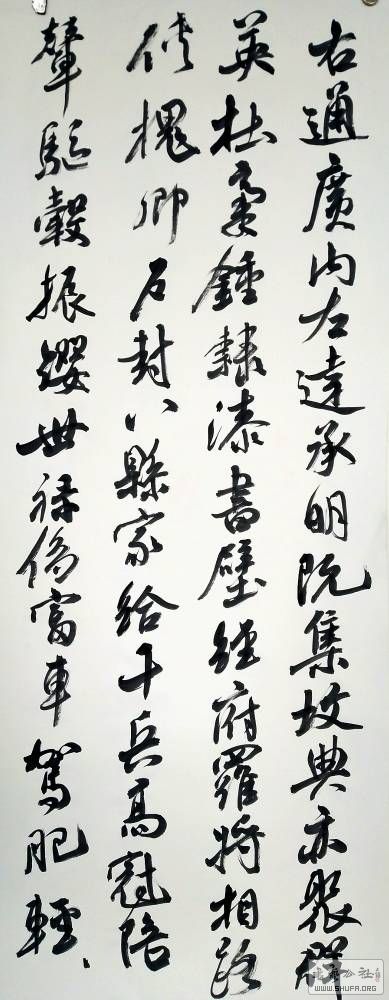 右通廣內左達承明既集坟典亦聚群
英杜稾鍾隸漆書壁經府羅將相路
俠槐卿戶封八縣家給千兵高冠陪
輦驅轂振纓世祿侈富車駕肥輕、
WWW.SHUFA.ORG